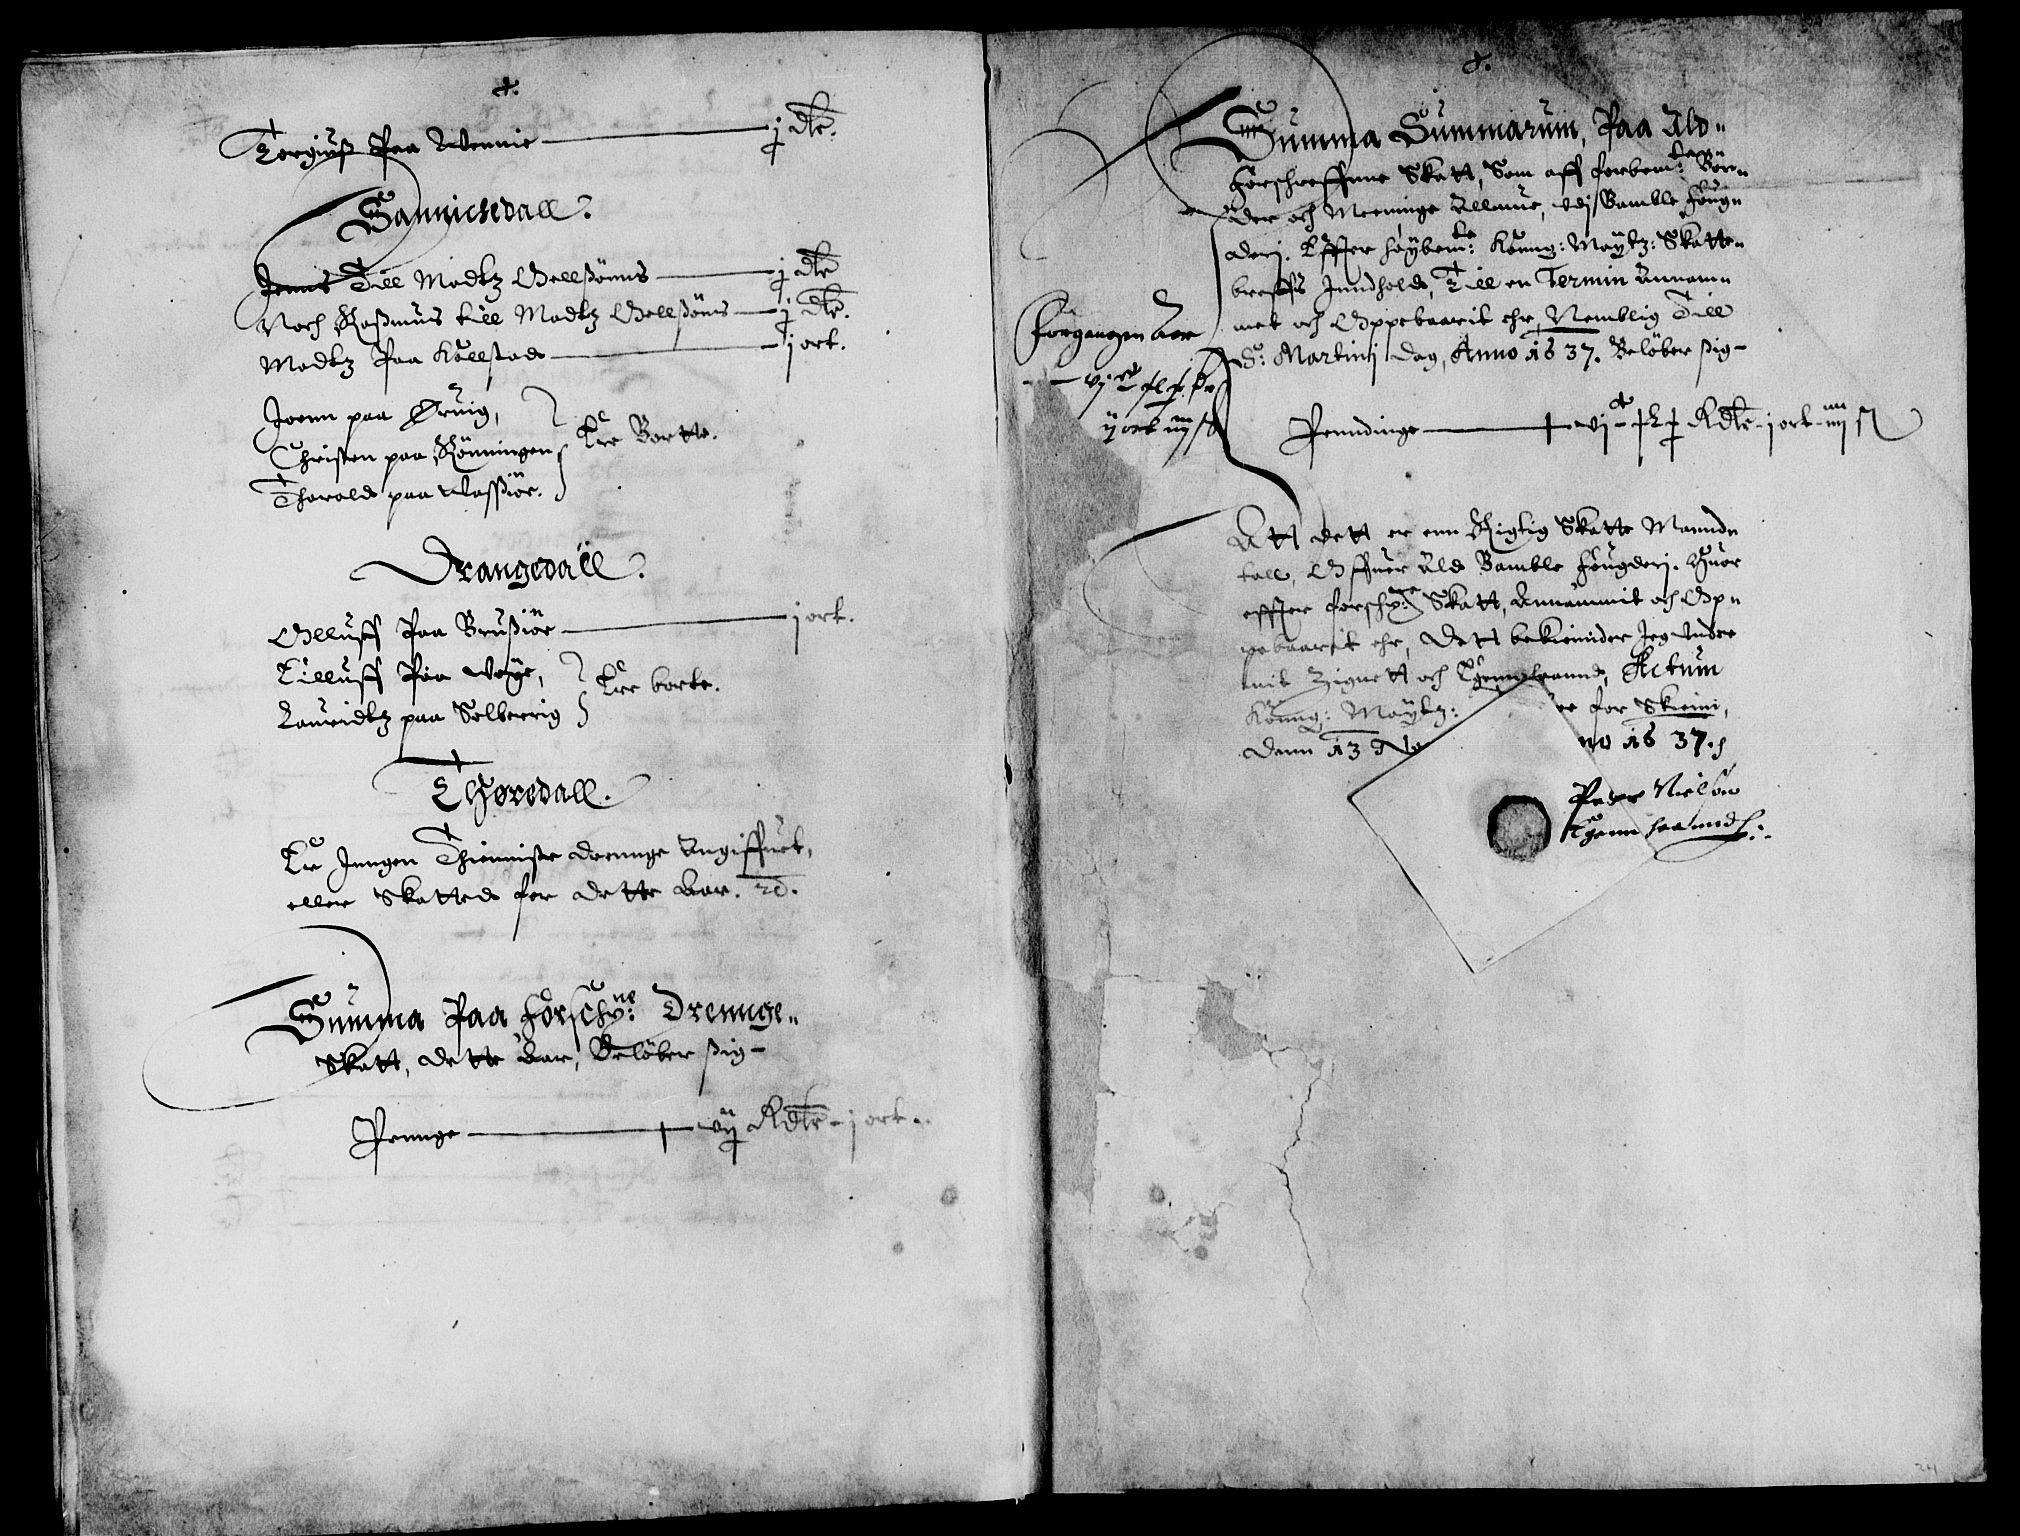 Torgiuß Paa Wennie — j dlr.
Sannickedall.
Jenns Till Madtz Oellßöns — j dlr
Noch Raßmus till Madtz Oellßöns — j dlr.
Madtz Paa Kollstad — j ort.
Joenn paa Øruig,
Christen paa Rönningen
Ere Bortte.
Tharald paa Wassiør.
Drangedall.
Olluff Paa Brußiör — j ort.
Tilluff Paa Woye,
Ere borte.
Lauridtz paa Solberrig
Thøredall.
Er Inngen Thienniste drennge Angiffuet,
eller Skatted for dette Aar.
Summa Paa Forschr:ne Drennge-
Skatt, dette Aar, Belöber sig-
Pennge — vij Rdlr - j ort.
Summa Summarum, Paa Ald-
Forschreffne Skatt, Som aff forbem:te Bön-
der och Meninge Allmue, vdj Bamble Foug-
derj. Effter høybem:te Kong: Maytz: Skatte-
breffs Inndhold, Till en Termin Annam-
met och Oppebaarit ehr, Nemblig Till
S: Martinj dag, Anno 1637. Beløber sig-
Forgangen Aar
ij ort iiij ß
Penndinge — vjc Rdlr - j ort - iiij ß
Att dett er enn Rigtig Skatte Manndr
tall, Offuer Ald Bamble Fougderj. Huor
effter forschr:ne Skatt, Annammit och Op-
pebaarit ehr, Dett bekiender Jeg Vnder
mit Zignett och Egennhaannd, Actum
Kong: Maytz: for Skieni,
Denn 13 no 1637.
Peder Nielsøn
Egenn haanndt.
24